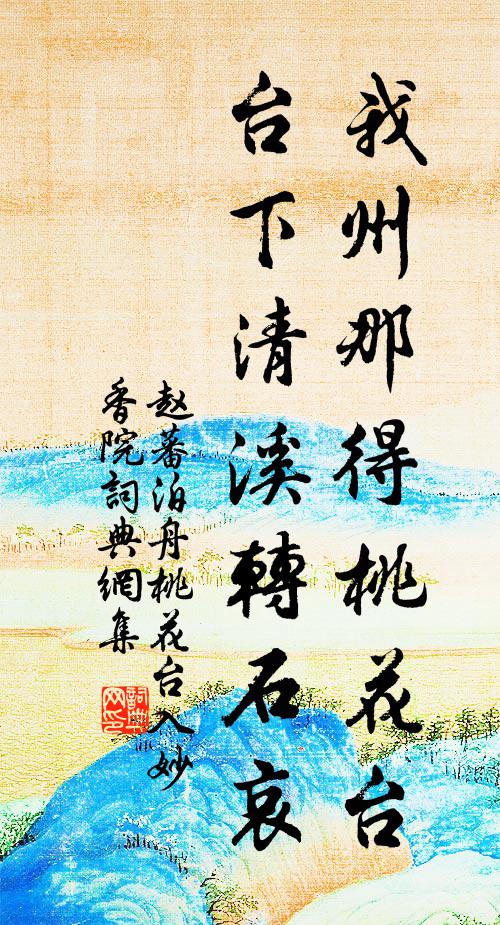 我州那得桃花台
台下清溪轉石哀
赵蕃泊舟桃花台入妙
香院詞典網集